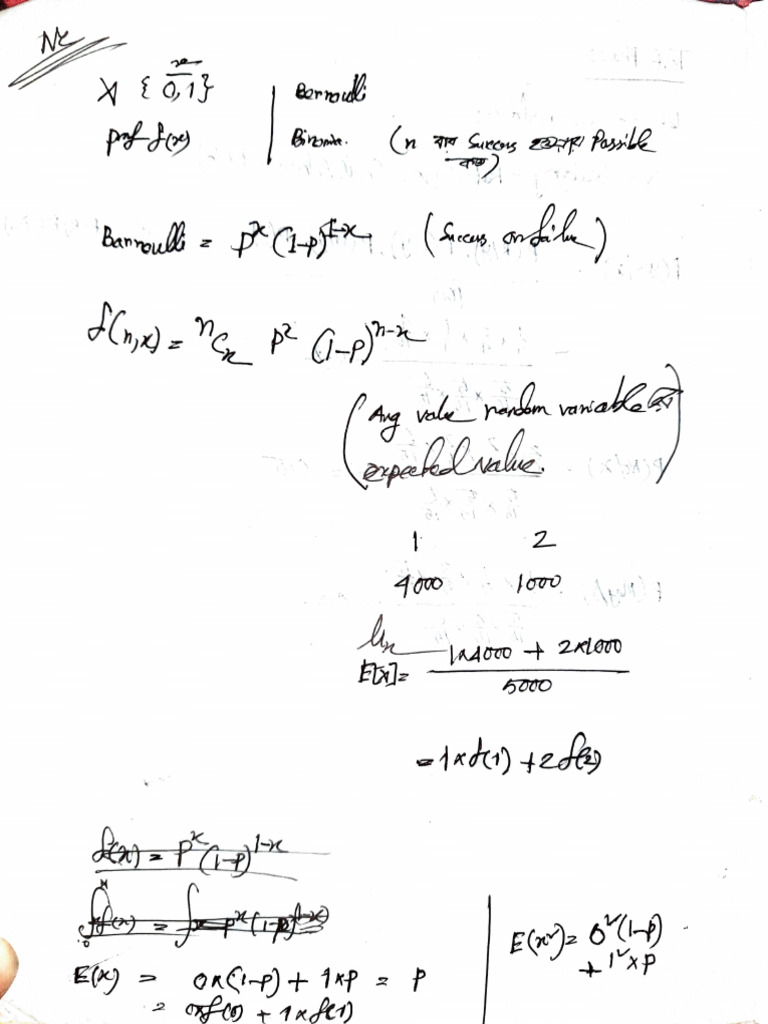 X { 0,1}
x
Bernoulli
pmf f(x)
(n বার Success হওয়ার Possible
Barnoulli = p^x (1-p)^1-x (Success or failure)
f(n,x) = nCx p^x (1-p)^n-x
(Avg value random variable এর
expected value.)
1 2
4000 1000
lim
E[x]= 1x4000 + 2x1000
5000
= 1xf(1) + 2f(2)
f(x) = p^x (1-p)^1-x
E(x) = 0x(1-p) + 1xp = p
= 0xf(0) + 1xf(1)
E(x²)= 0²(1-p)
+ 1² x p